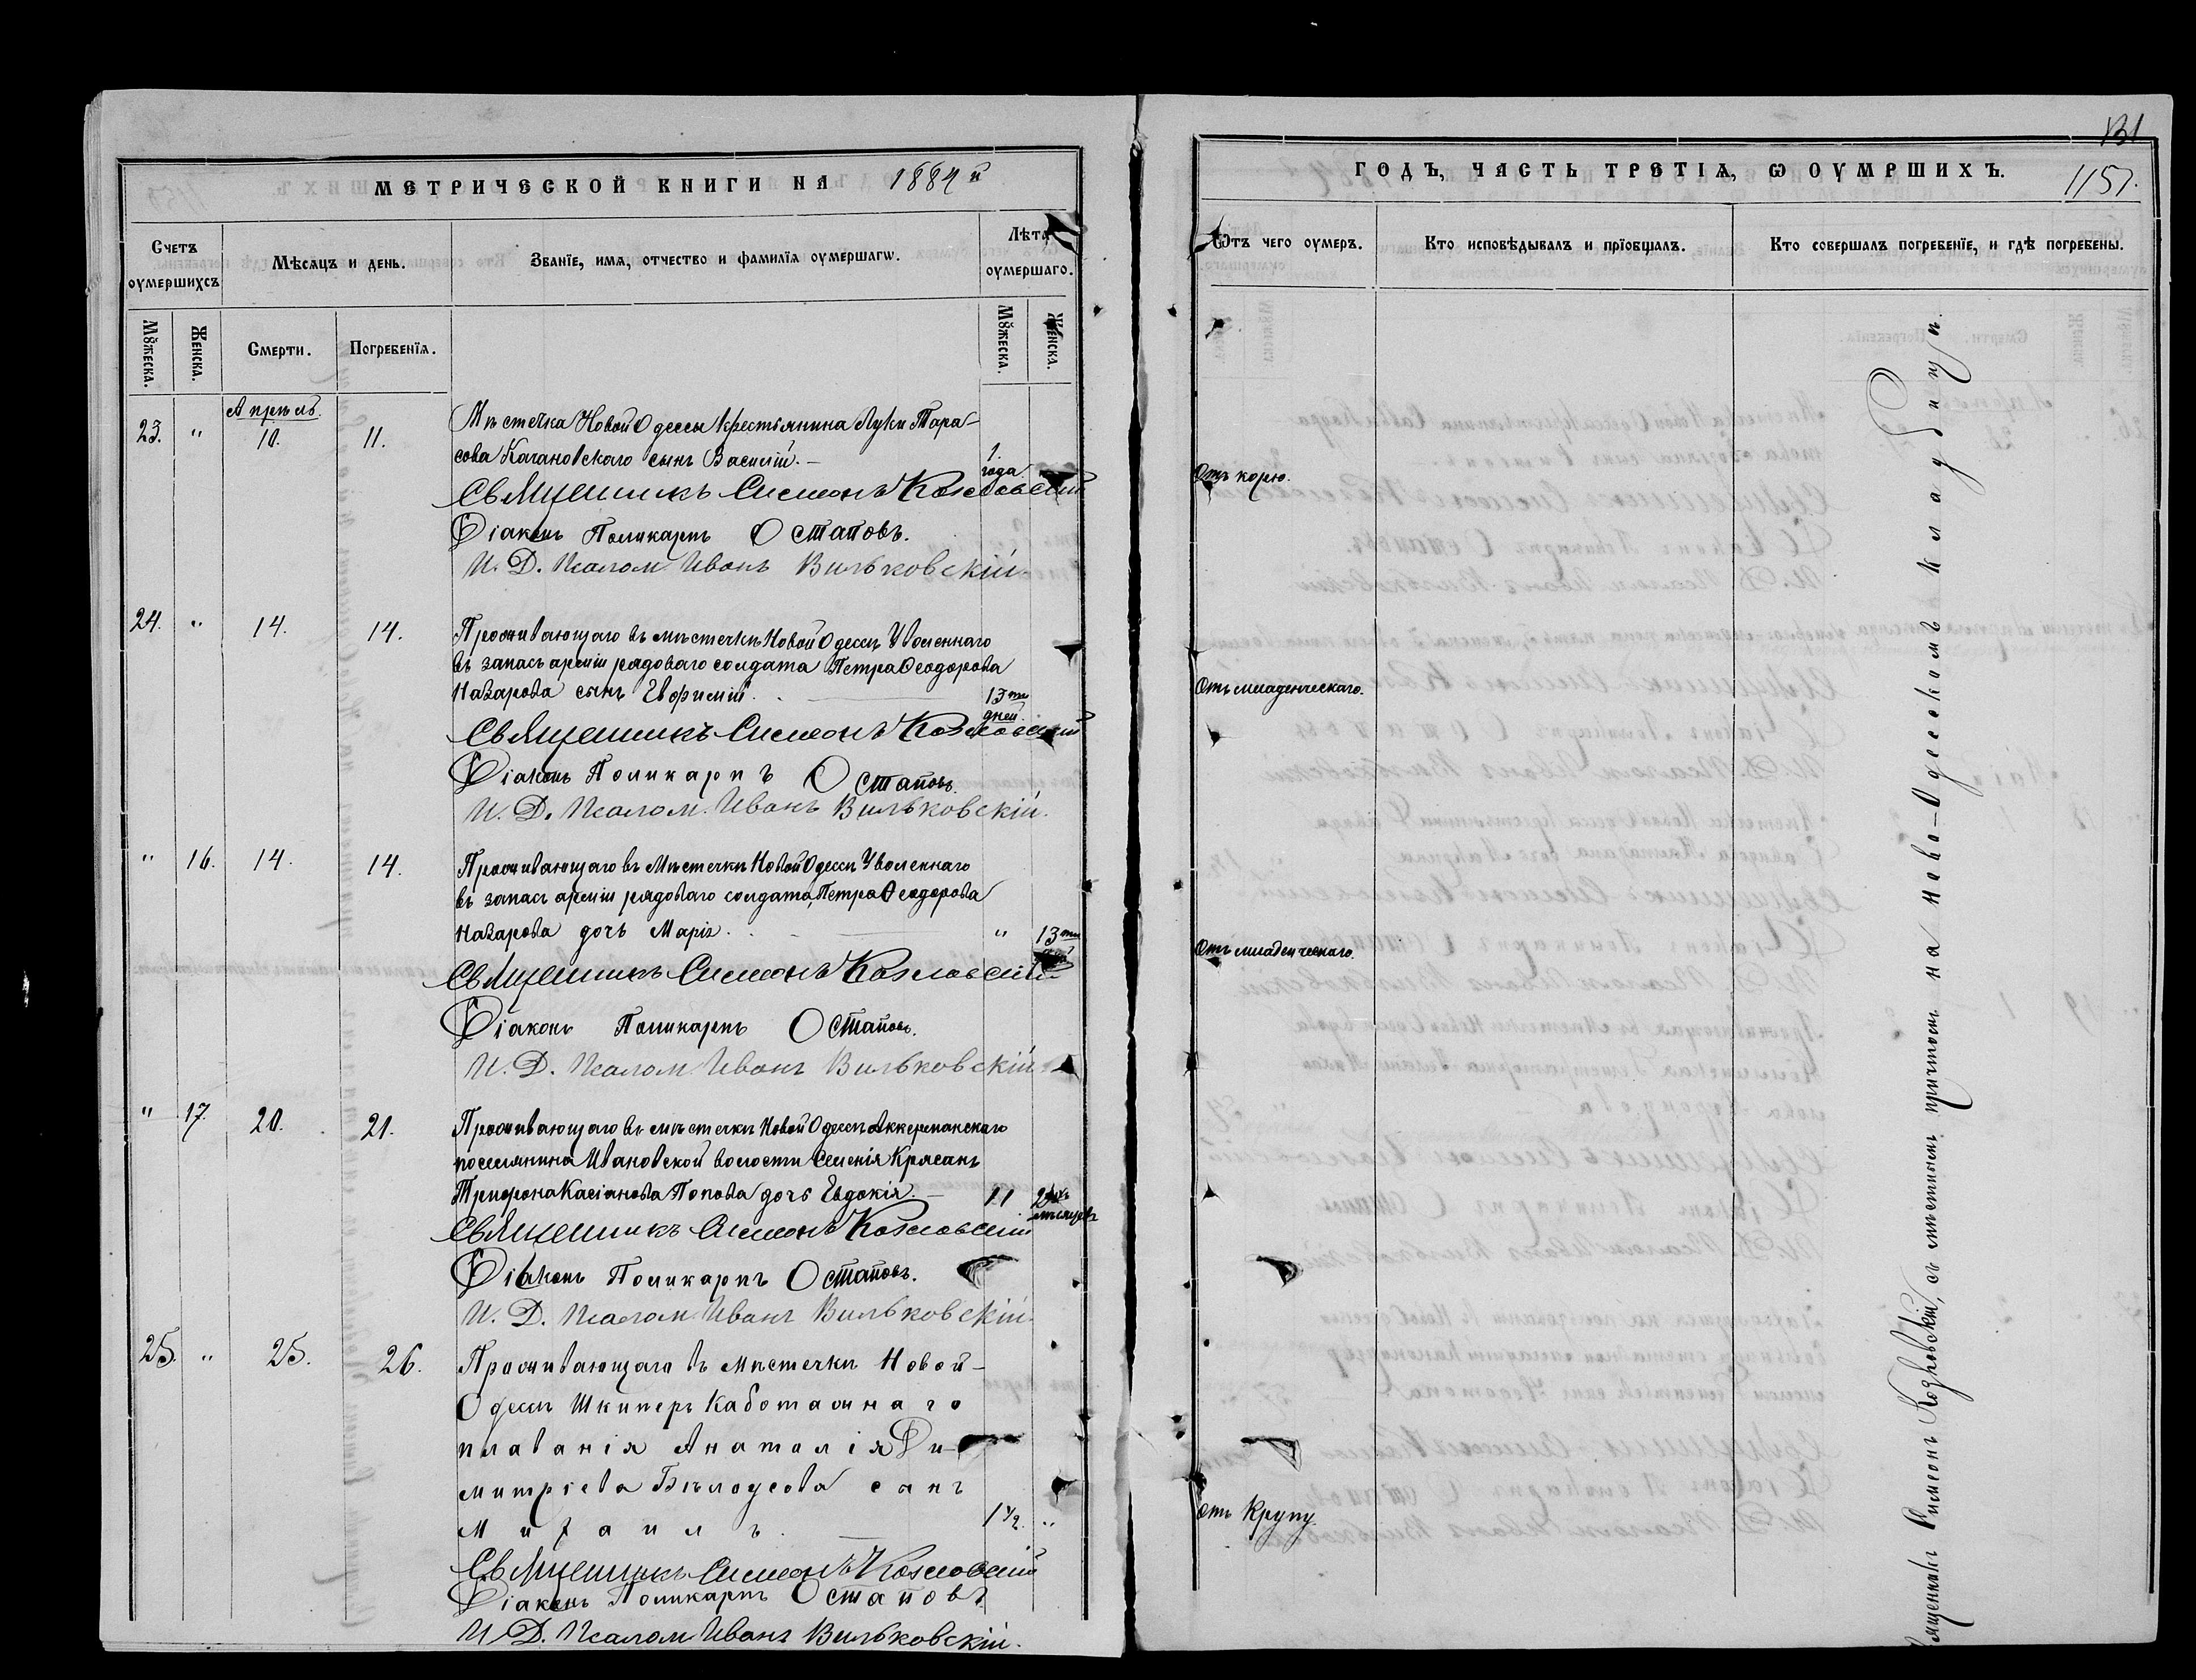 МЕТРИЧЕСКОЙ КНИГИ НА 1884й
Счетъ оумершихъ
Мѣсяцъ и день.
Званїе, имя, отчество и фамилїя оумершагѡ.
Лѣта оумершаго.
Мꙋжеска.
Женска.
Смерти.
Погребенїя.
Мꙋжеска.
Женска.
Апрѣль.
23. " 10. 11. Мѣстечка Новой Одессы крестьянина Луки Тара-
сова Качановскаго сынъ Василій. — 1. года
Священникъ Симеонъ Козловскій
Діаконъ Поликарпъ Остаповъ.
И. Д. Псалом. Иванъ Вильковскій.
24. " 14. 14. Проживающаго въ мѣстечкѣ Новой Одессѣ Уволеннаго
въ запасъ арміи рядоваго солдата Петра Ѳеодорова
Назарова сынъ Евфимій. 13ти дней.
Священникъ Симеонъ Козловскій
Діаконъ Поликарпъ Остаповъ.
И. Д. Псалом. Иванъ Вильковскій.
" 16. 14. 14. Проживающаго въ Мѣстечкѣ Новой Одессѣ Уволеннаго
въ запасъ арміи рядоваго солдата, Петра Ѳеодорова
Назарова дочь Марія. " 13ти
Священникъ Симеонъ Козловскій
Діаконъ Поликарпъ Остаповъ.
И. Д. Псалом. Иванъ Вильковскій.
" 17. 20. 21. Проживающаго въ мѣстечкѣ Новой Одессѣ Аккерманскаго
поселянина Ивановской волости Селенія Крясанъ
Трифона Касіанова Попова дочь Евдокія. — 11 2хъ мѣсяцевъ
Священникъ Симеонъ Козловскій
Діаконъ Поликарпъ Остаповъ.
И. Д. Псалом. Иванъ Вильковскій.
25. " 25. 26. Проживающаго въ Мѣстечкѣ Новой-
Одессѣ Шкиперъ Каботажнаго
плаванія Анатолія Ди-
митріева Бѣлоусова санъ
Михаилъ. — 1 1/2. "
Священникъ Симеонъ Козловскій
Діаконъ Поликарпъ Остаповъ.
И. Д. Псалом. Иванъ Вильковскій.
131
ГОДЪ, ЧАСТЬ ТРЕТІЯ, Ѡ ОУМРШИХЪ.
1157.
Ѿтъ чего оумеръ.
Кто исповѣдывалъ и прїобщалъ.
Кто совершалъ погребенїе, и гдѣ погребены.
Отъ корю.
Отъ младенческаго.
Отъ младенческаго.
отъ Крупу.
Священникъ Симеонъ Козловскій, съ мѣстнымъ причтомъ на Ново-Одесскомъ кладбищѣ.